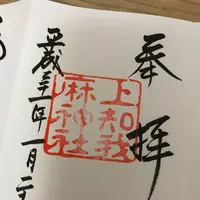 奉拝
上知我
麻神社
平成三十一年一月二